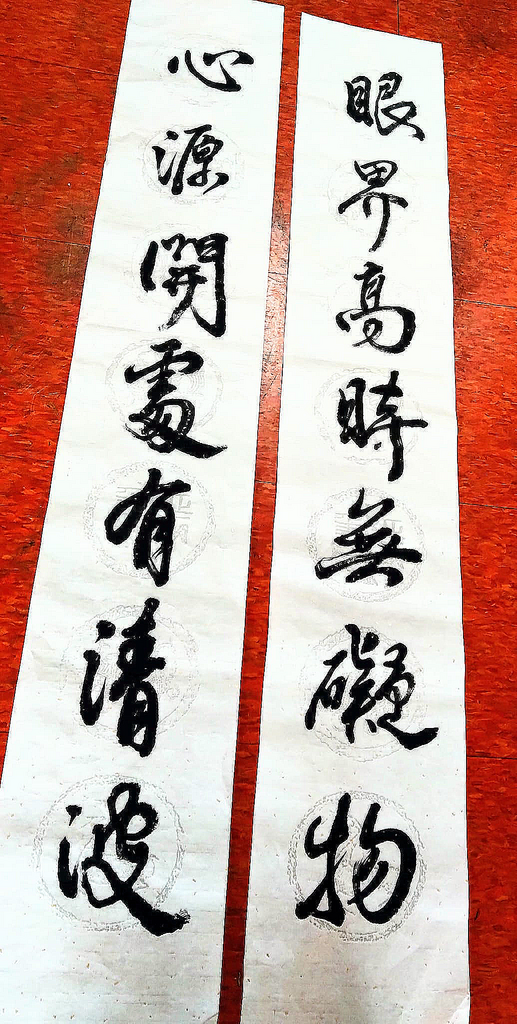 眼界高時無礙物
心源開處有清波